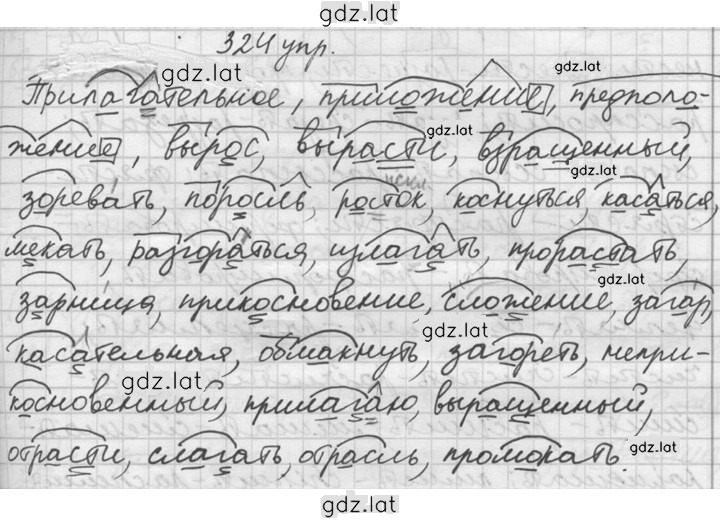 gdz.lat
324 упр.
gdz.lat gdz.lat
Прилагательное, приложение, предполо-
gdz.lat
жение, вырос, вырасти, взращенный,
искл.
зоревать, поросль, росток, коснуться, касаться,
мокать, разгораться, излагать, прорастать,
gdz.lat
зарница, прикосновение, сложение, загар,
gdz.lat
касательная, обмакнуть, загореть, непри-
gdz.lat
косновенный, прилагаю, выращенный,
gdz.lat
отрасти, слагать, отрасль, промокать.
gdz.lat